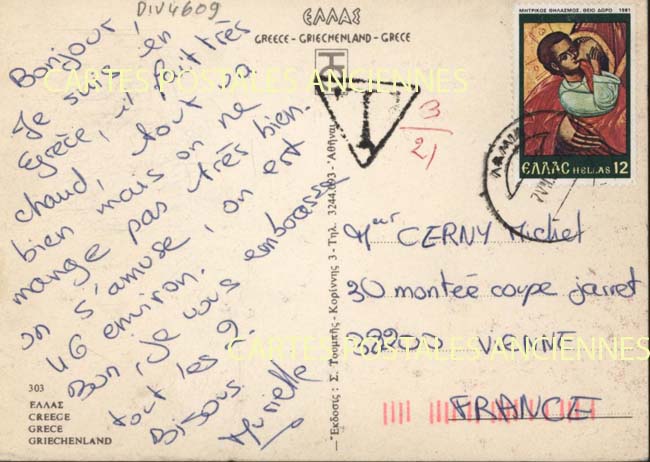 DIV4609
ΕΛΛΑΣ
GREECE - GRIECHENLAND - GRECE
Bonjour,
Je suis en
Grèce, il fait très
chaud, tout va
bien mais on ne
mange pas très bien.
on s'amuse, on est
46 environ.
Bon, je vous embrasse
tout les 9.
Bisous.
Murielle
303
ΕΛΛΑΣ
CREECE
GRECE
GRIECHENLAND
Ἔκδοσις: Σ. Τουμπῆς - Κορίννης 3 - Τηλ. 3244.693 - Ἀθῆναι
T
3/21
ΜΗΤΡΙΚΟΣ ΘΗΛΑΣΜΟΣ, ΘΕΙΟ ΔΩΡΟ 1981
ΕΛΛΑΣ HELLAS 12
Meur CERNY Michel
30 monteé coupe jarret
VIENNE
FRANCE
CARTES POSTALES ANCIENNES
CARTES POSTALES ANCIENNES